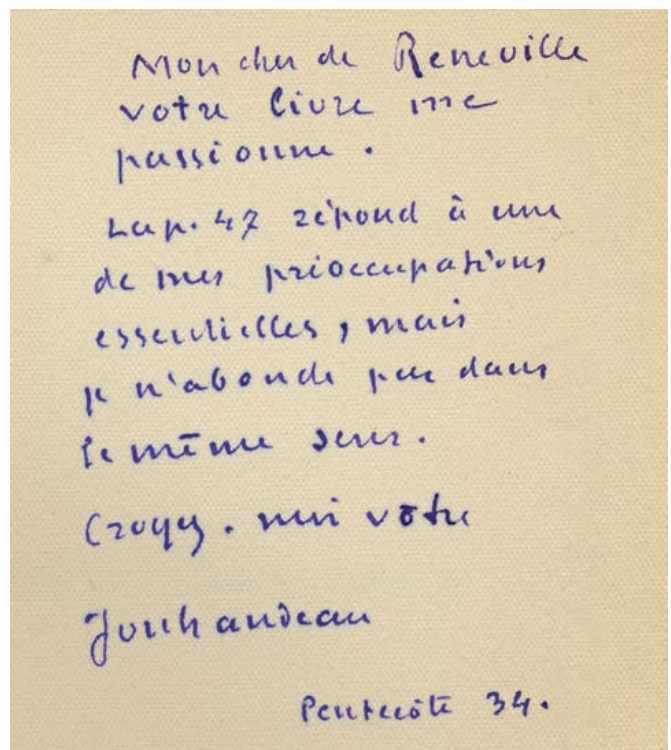 Mon cher de Reneville
votre livre me
passionne.
La p. 47 répond à une
de mes préoccupations
essentielles, mais
je n'abonde pas dans
le même sens.
Croyez-moi votre
Jouhandeau
Pentecôte 34.